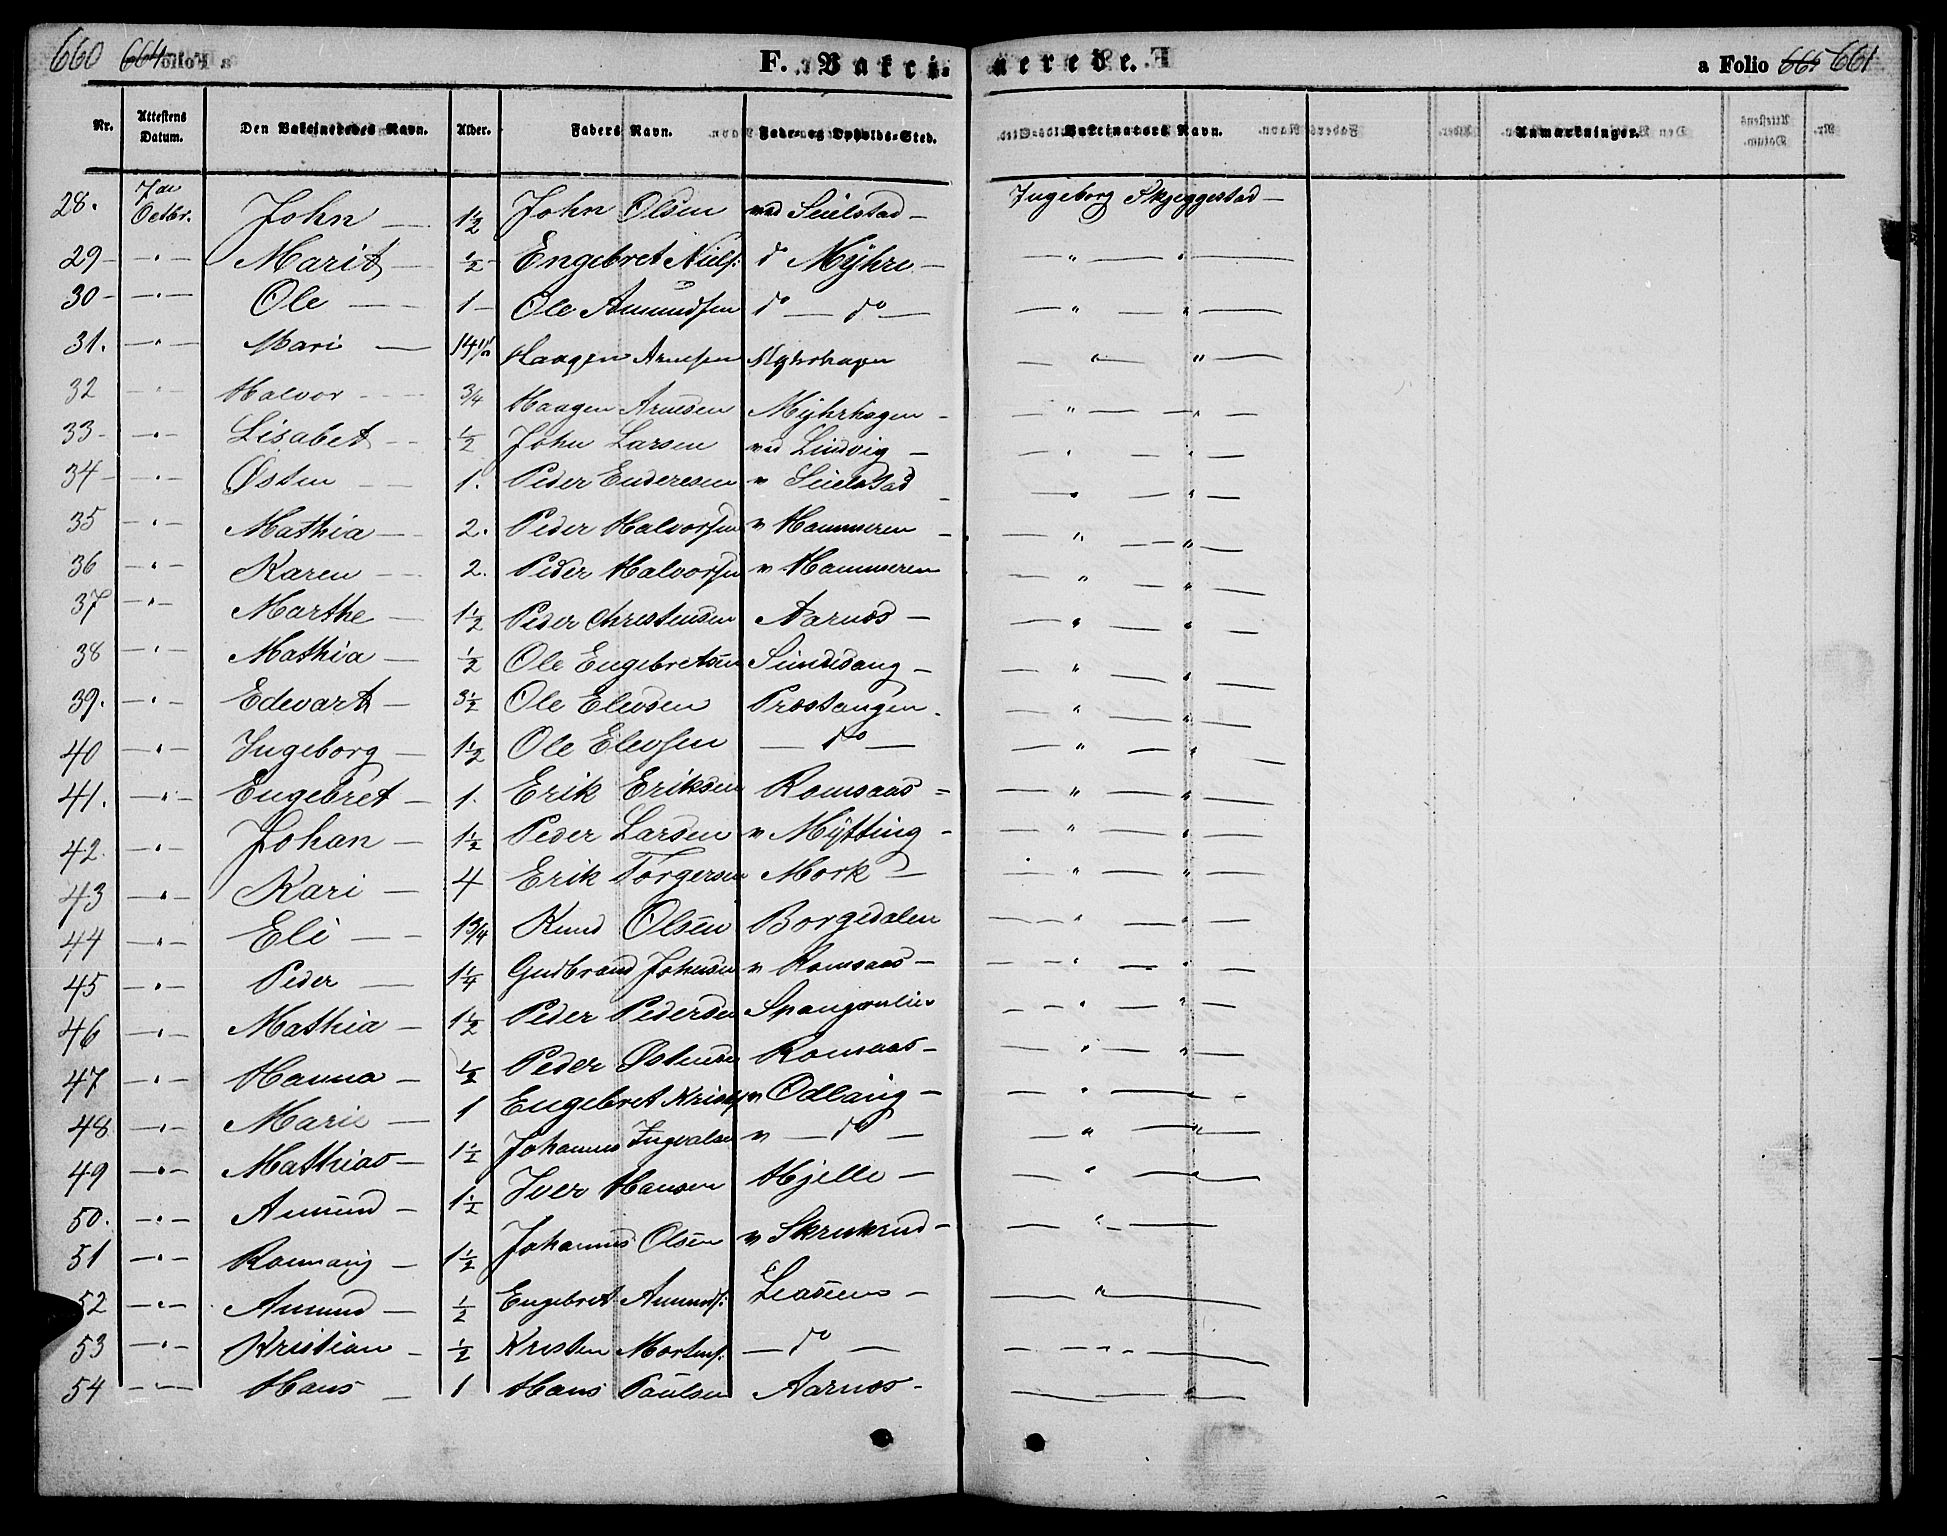 660 664 F. Vakcinerede. a Folio 665 661
Nr. Attestens Datum. Den Vakcineredes Navn. Alder. Faders Navn. Føde- og Opholds-Sted. Vakcinators Navn. Anmærkninger.
28. 7de Octbr. John — 1½ John Olsen ved Seielstad — Ingeborg Skjeggestad —
29 — " — Marit — ½ — Engebret Niels: do Myhre — — " — " —
30 — " — Ole — 1 — Ole Amundsen do — do — — " — " —
31. — " — Mari — 14 Haagen Arnesen Myhrhagen — " — " —
32 — " — Halvor — 3/4 Haagen Arnesen Myhrhagen — — " — " —
33 — " — Lisabet — ½ John Larsen ved Lindvig — — " — " —
34 — " — Østen — 1. Peder Enderesen v Seielstad — — " — " —
35 — " — Mathia — 2. Peder Halvorsen v Hammeren — — " — " —
36 — " — Karen — 2. Peder Halvorsen v Hammeren — " — " —
37 — " — Marthe — 1½ Peder Christensen Aarnæs — — " — " —
38 — " — Mathia — ½ Ole Engebretsen Sundvang — — " — " —
39. — " — Edevart — 3½ Ole Elevsen Præstangen. — " — " —
40 — " — Ingeborg — 1½ Ole Elevsen — do — — " — " —
41. — " — Engebret — 1. Erik Eriksen Romsaas — — " — " —
42. — " — Johan — 1½ Peder Larsen v Mytting — — " — " —
43 — " — Kari — 4 Erik Torgersen Mork — — " — " —
44 — " — Eli — 1 3/4 Knud Olsen Borgedalen — " — " —
45 — " — Peder — 1¼ Gudbrand Johnsen v Romsaas — — " — " —
46 — " — Mathia — 1½ Peder Pedersen — " — " —
47 — " — Hanna — ½ Peder Østensen Romsaas — — " — " —
48 — " — Marie — 1 Engebret v Odlaug — — " — " —
49 — " — Mathias — 1½ Johannes Ingvalsen v — do — — " — " —
50. — " — Amund — 1½ Iver Hansen Hjelle — — " — " —
51 — " — Ronnaug — 1½ Johannes Olsen v Skrukrud — — " —
52 — " — Amund — ½ Engebret Amunds: — " —
53 — " — Kristian — ½ Kristen Mortens: — do — — " —
54 — " — Hans — 1 Hans Paulsen Aarnæs — — " —